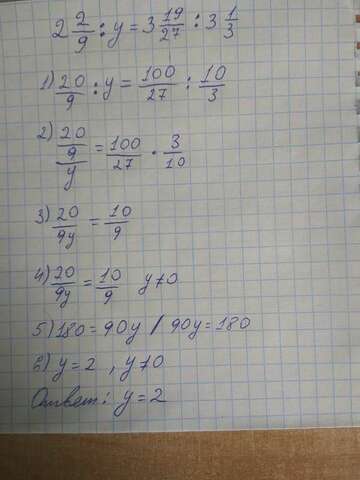 2 2/9 : y = 3 19/27 : 3 1/3
1) 20/9 : y = 100/27 : 10/3
2) 20/9/y = 100/27 · 3/10
3) 20/9y = 10/9
4) 20/9y = 10/9 y≠0
5) 180 = 90y / 90y = 180
6) y = 2 , y≠0
Ответ: y = 2